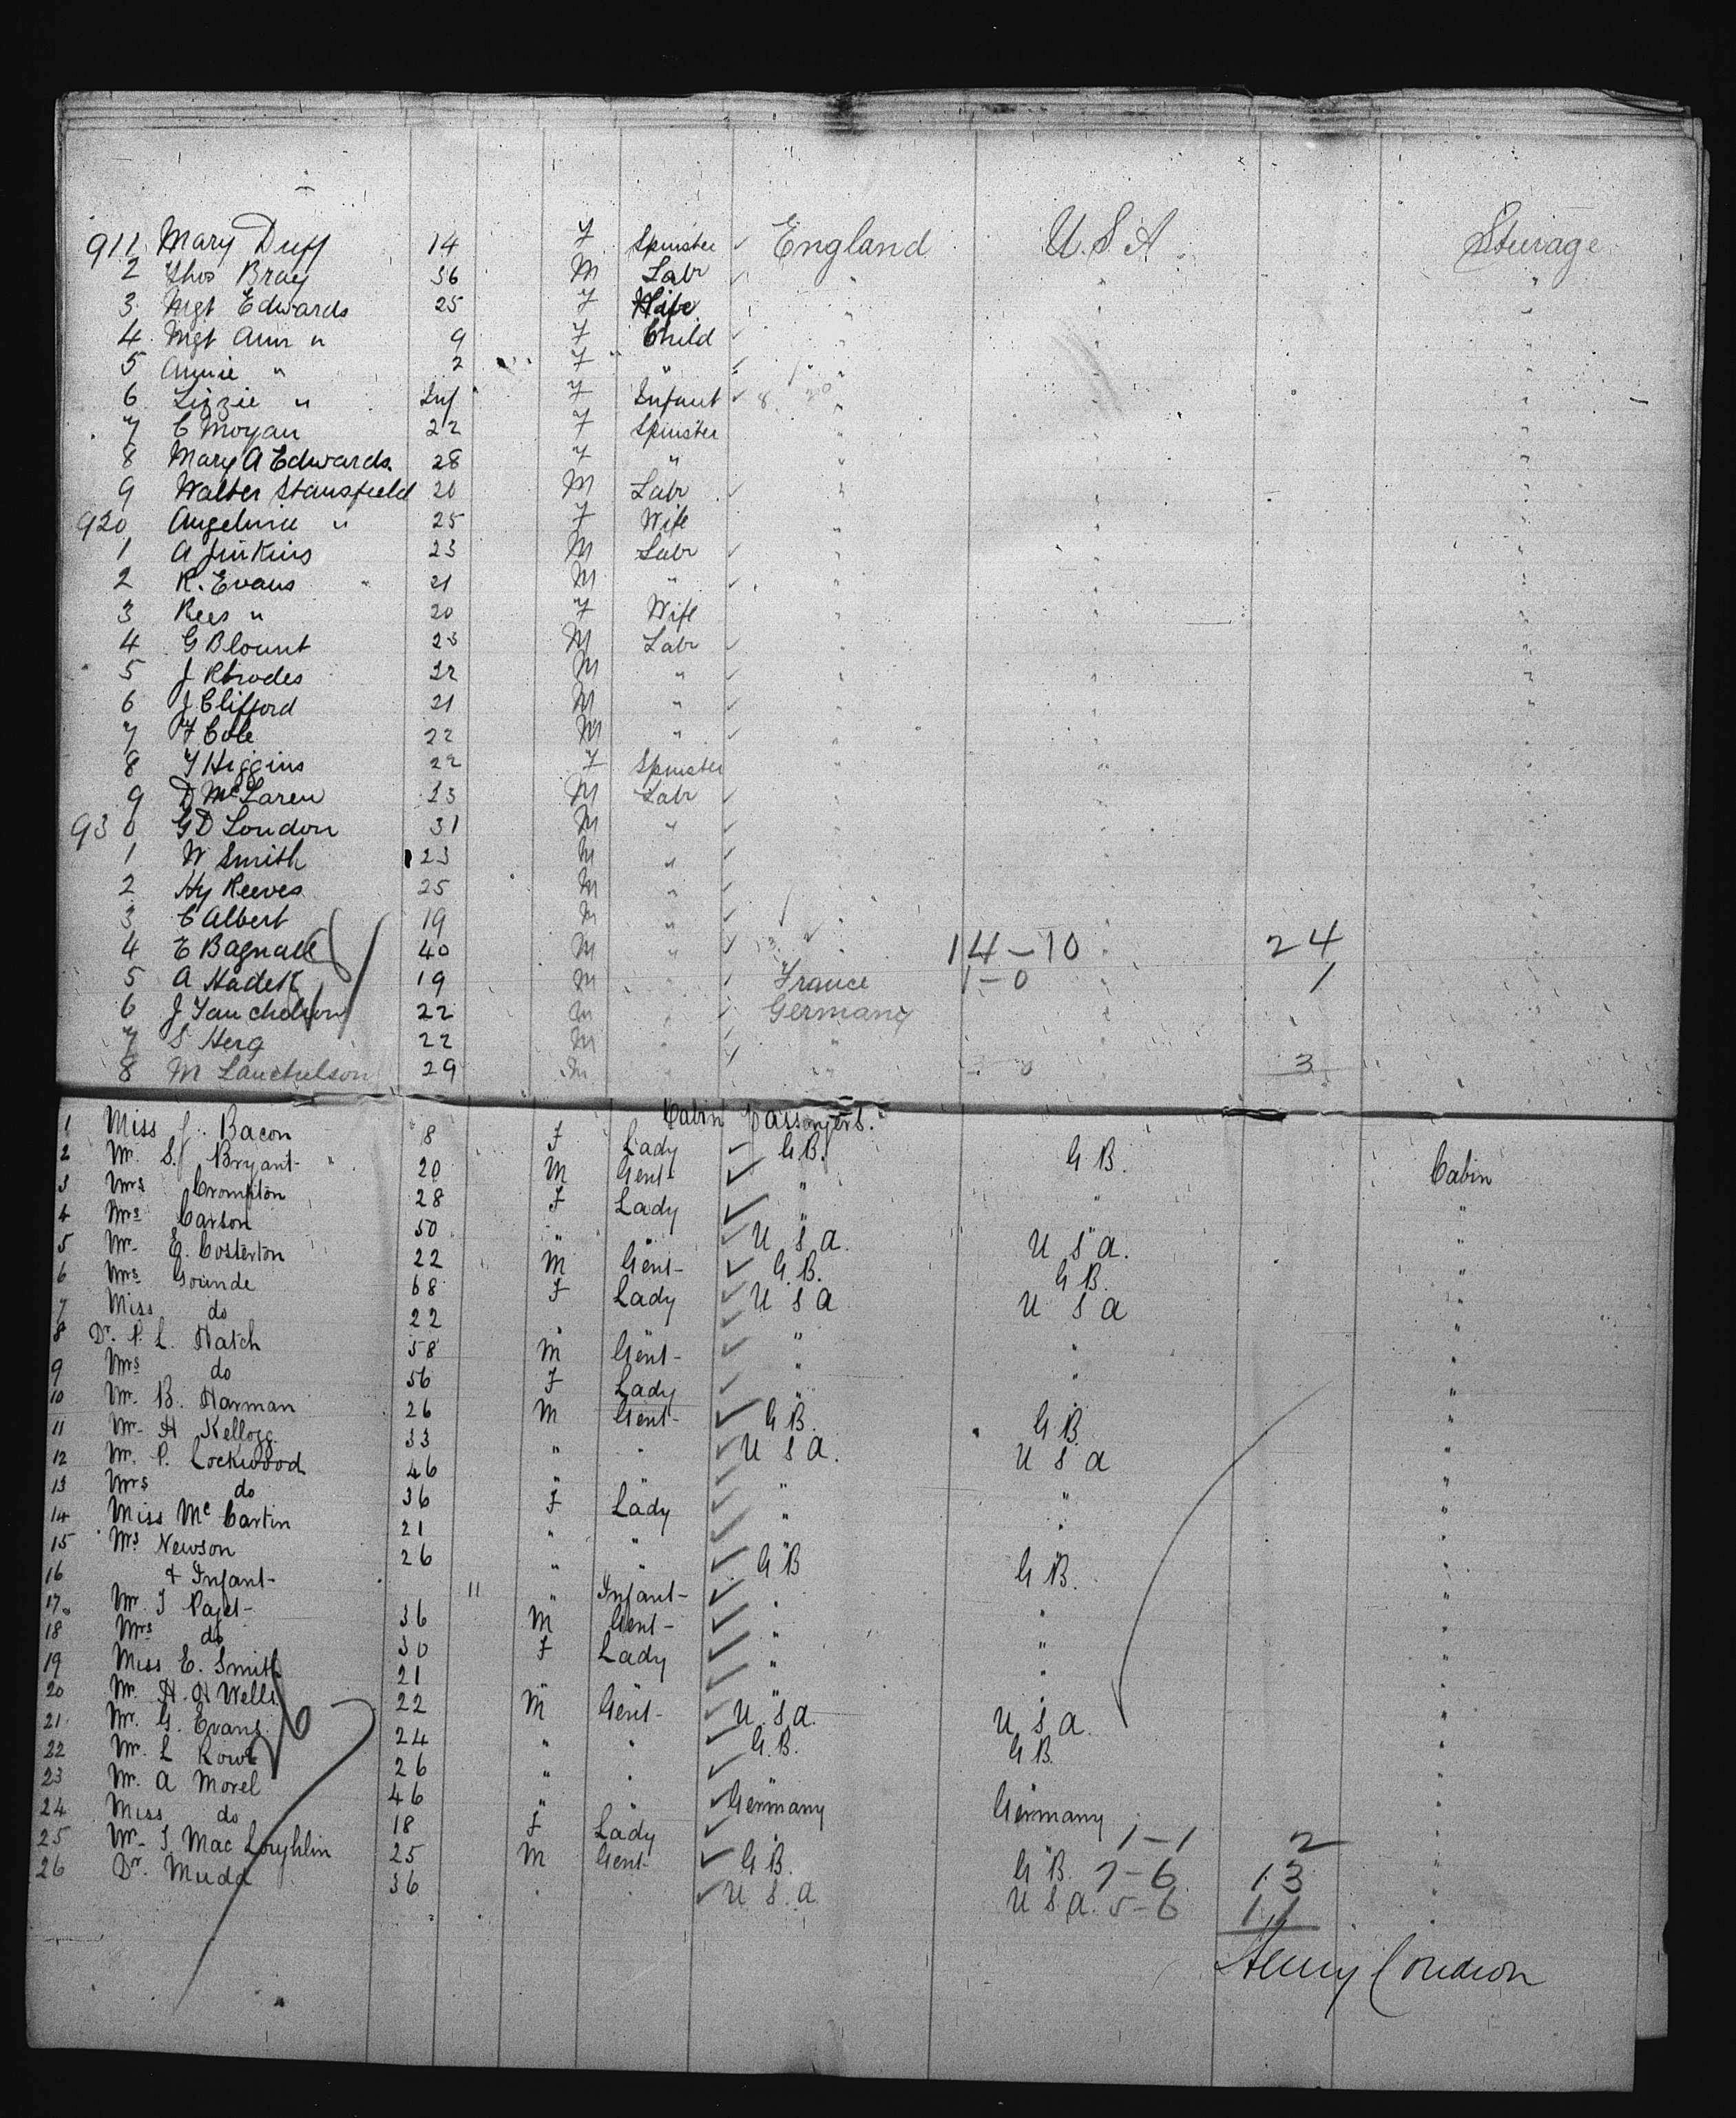 911 Mary Duff 14 F Spinster ✓ England U.S.A Steerage
2 Thos Bray 36 M Labr ✓ " " "
3 Mgt Edwards 25 F Wife " " "
4 Mgt Ann " 9 F Child ✓ " " "
5 Annie " 2 F " ✓ " " "
6 Lizzie " Inf F Infant ✓ " " "
7 C Moyan 22 F Spinster " " "
8 Mary A Edwards 28 F " " " "
9 Walter Stansfield 20 M Labr ✓ " " "
920 Angelinie " 25 F Wife " " "
1 A Jinkins 23 M Labr ✓ " " "
2 R. Evans 21 M " ✓ " " "
3 Rees " 20 F Wife " " "
4 G Blount 23 M Labr ✓ " " "
5 J Rhodes 22 M " ✓ " " "
6 J Clifford 21 M " ✓ " " "
7 F Cole 22 M " ✓ " " "
8 F Higgins 22 F Spinster " " "
9 D McLaren 23 M Labr ✓ " " "
930 G D London 31 M " ✓ " " "
1 W Smith 23 M " ✓ " " "
2 Hy Reeves 25 M " ✓ " " "
3 C Albert 19 M " ✓ " " "
4 E Bagnall 40 M " ✓ " 14-10 " 24 "
5 A Hadett 19 M " ✓ France 1-0 " 1 "
6 J 22 M " ✓ Germany " "
7 S Herg 22 M " ✓ " " "
8 M 29 M " ✓ " 3-0 3 "
Cabin Passengers.
1 Miss J. Bacon 8 F Lady ✓ G.B. G B. Cabin
2 Mr. S. Bryant 20 M Gent ✓ " " "
3 Mrs Crompton 28 F Lady ✓ " " "
4 Mrs Carson 50 " " ✓ U S A. U S A. "
5 Mr. E. Costerton 22 M Gent ✓ G.B. G B. "
6 Mrs Gounde 68 F Lady ✓ U S A U S A "
7 Miss do 22 " " ✓ " " "
8 Dr. P. L. Hatch 58 M Gent ✓ " " "
9 Mrs do 56 F Lady ✓ " " "
10 Mr. B. Harman 26 M Gent ✓ G B. G B. "
11 Mr. H Kellogg 33 " " ✓ U S A. U S A "
12 Mr. P. Lockwood 46 " " ✓ " " "
13 Mrs do 36 F Lady ✓ " " "
14 Miss McCartin 21 " " ✓ " " "
15 Mrs Newson 26 " " ✓ G B G B. "
16 & Infant 11 " Infant ✓ " " "
17 Mr J Paget 36 M Gent ✓ " " "
18 Mrs do 30 F Lady ✓ " " "
19 Miss E. Smith 21 " " ✓ " " "
20 Mr. H. H Wells 22 M Gent ✓ U.S.A. U S A. "
21 Mr. G. Evans 24 " " ✓ G.B. G B. "
22 Mr. L Rowe 26 " " ✓ " " "
23 Mr. A Morel 46 " " ✓ Germany Germany "
24 Miss do 18 F Lady ✓ " " 1-1 2 "
25 Mr. J Mac Loughlin 25 M Gent ✓ G B. G B. 7-6 13 "
26 Dr. Mudd 36 " " ✓ U S. A. U S A. 5-6 11 "
26
Henry Condron